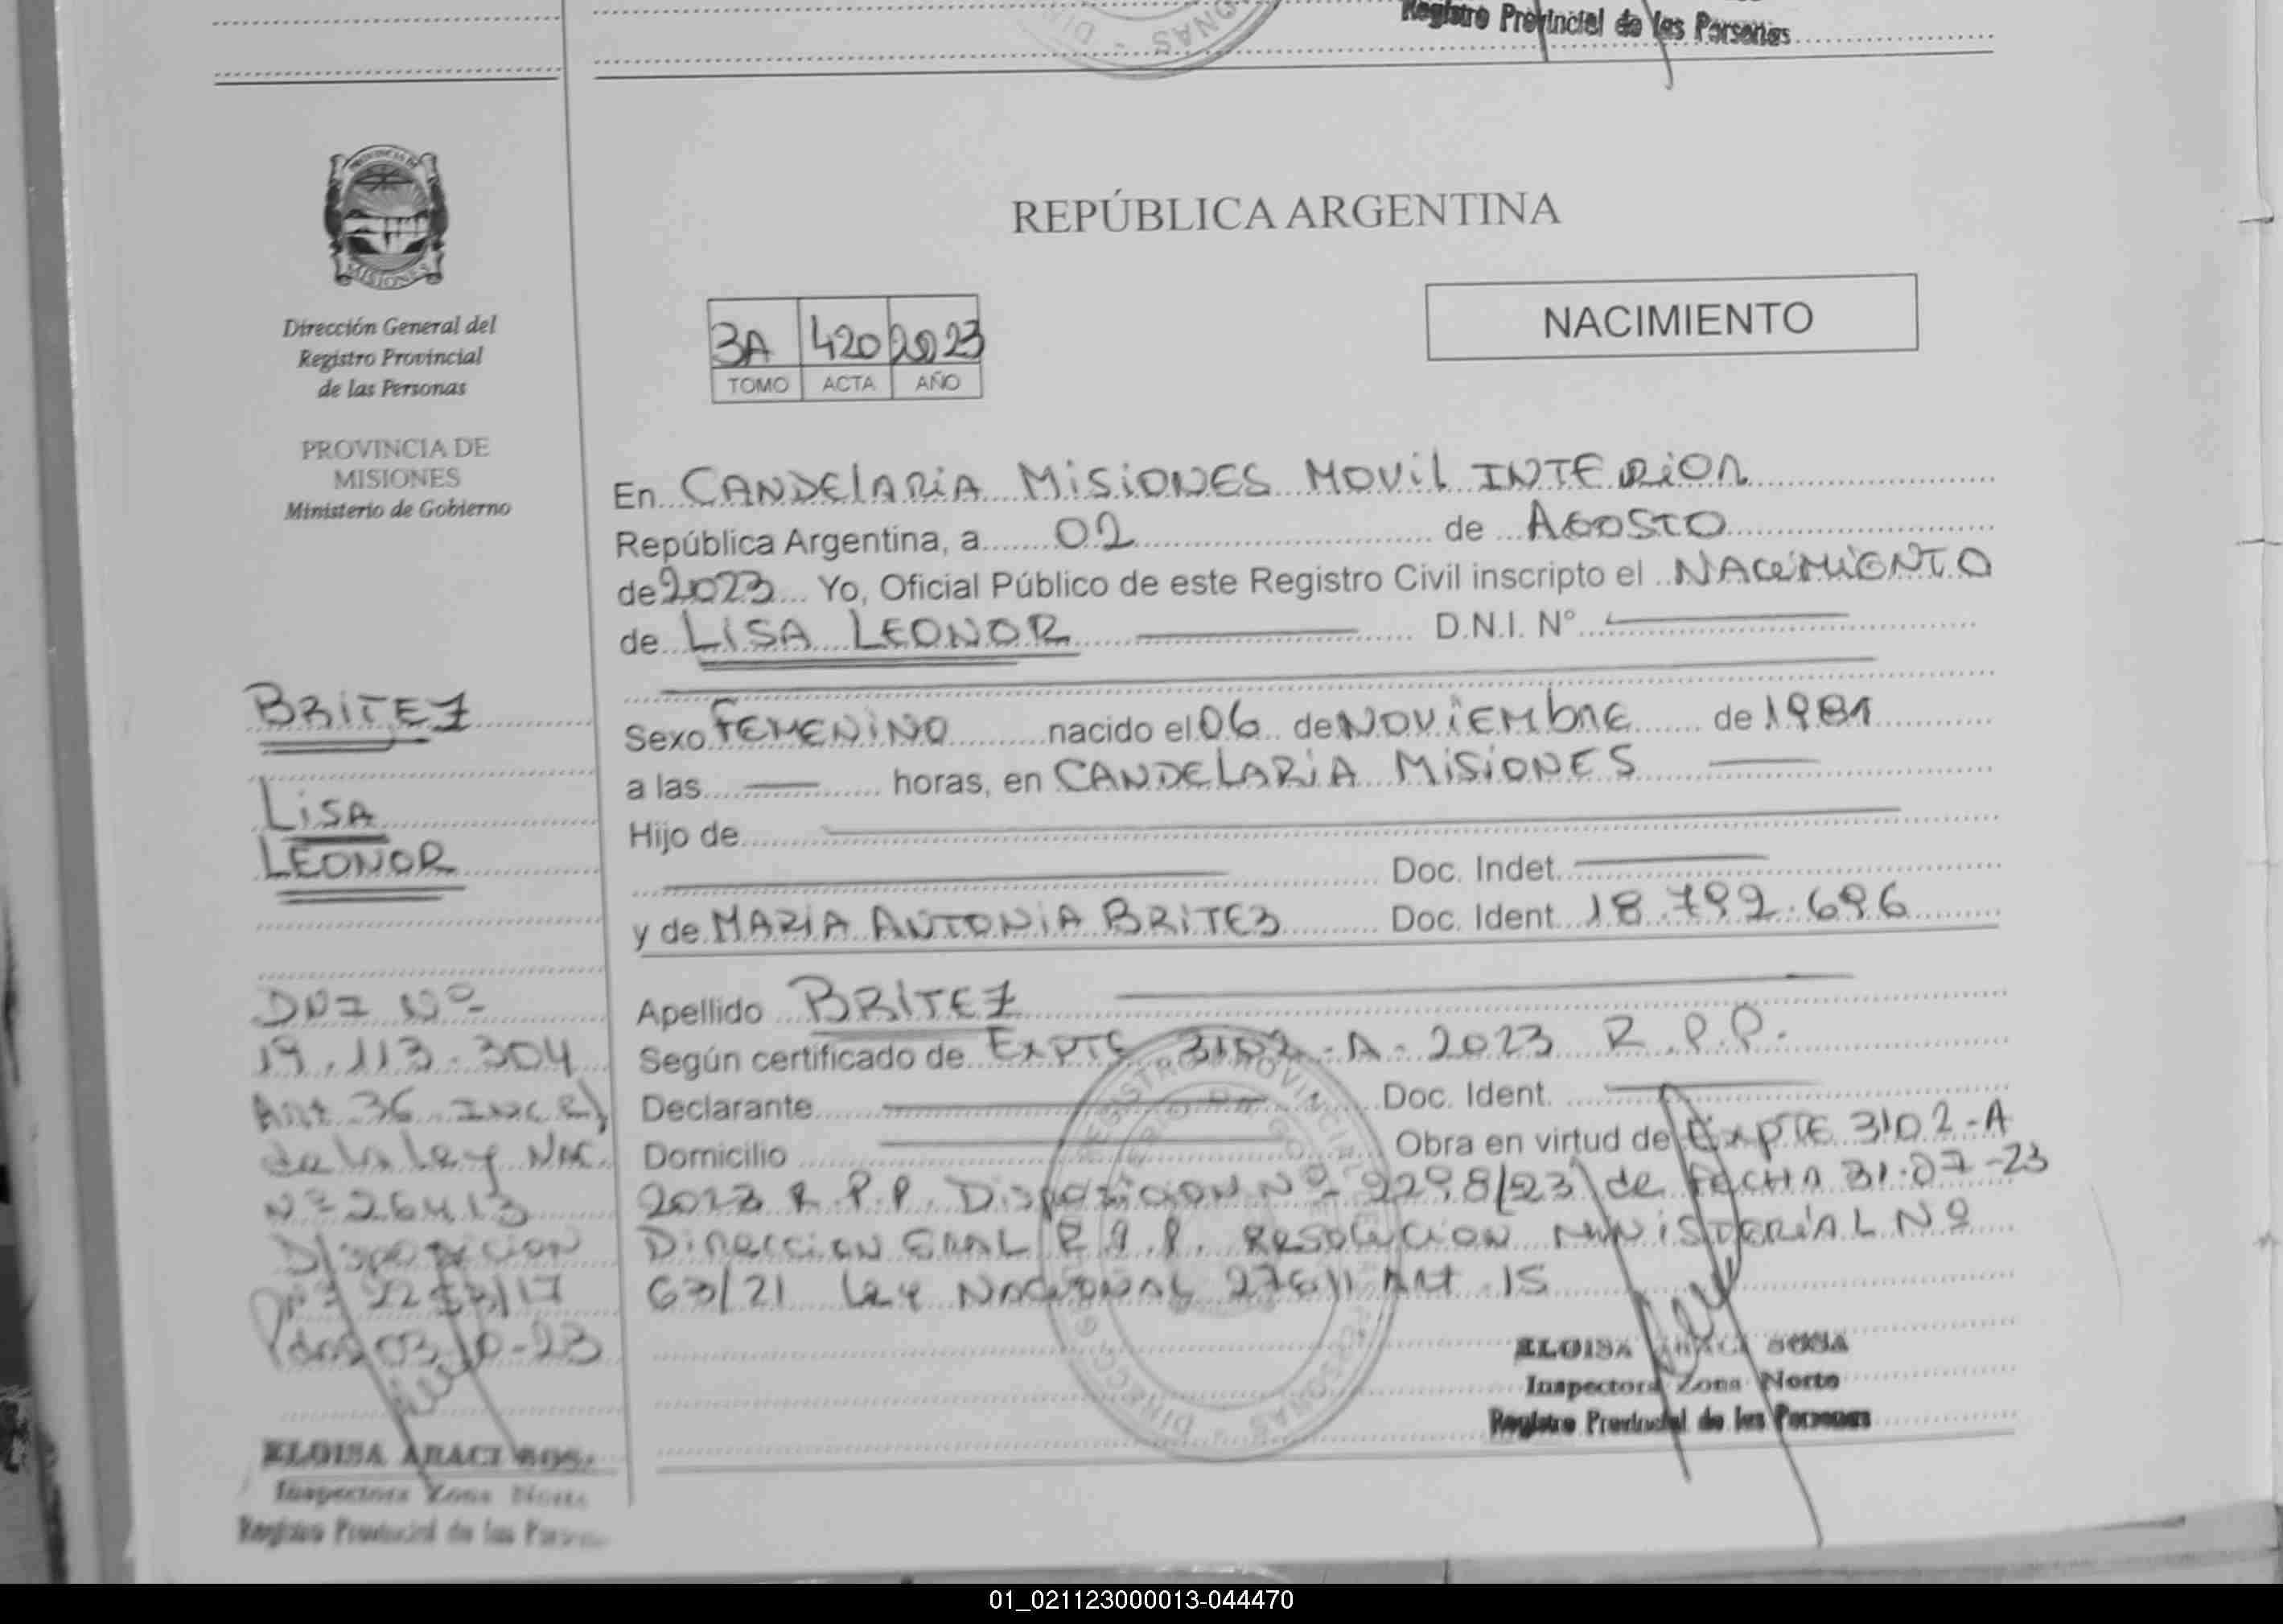 Registro Provincial de las Personas
PROVINCIA DE
MISIONES
Dirección General del
Registro Provincial
de las Personas
PROVINCIA DE
MISIONES
Ministerio de Gobierno
BRITEZ
LISA
LEONOR
DNI Nº
19.113.304
Art 36 INC E)
de la Ley NAC.
Nº 26413
Disposicion
03-10-23
ELOISA ARACI SOS
Inspectora Zona Norte
Registro Provincial de las Persona
REPÚBLICA ARGENTINA
NACIMIENTO
3A 420 2023
TOMO ACTA AÑO
En CANDELARIA MISIONES MOVIL INTERIOR
República Argentina, a 02 de AGOSTO
de 2023 Yo, Oficial Público de este Registro Civil inscripto el NACIMIENTO
de LISA LEONOR D.N.I. N°
Sexo FEMENINO nacido el 06 de NOVIEMBRE de 1981
a las horas, en CANDELARIA MISIONES
Hijo de
Doc. Indet.
y de MARIA ANTONIA BRITEZ Doc. Ident. 18.792.696
Apellido BRITEZ
Según certificado de EXPTE 3102-A-2023 R.P.P.
Declarante Doc. Ident.
Domicilio Obra en virtud de EXPTE 3102-A
2023 R.P.P. DISPOSICION Nº 2298/23 de FECHA 31-07-23
DIRECCION GRAL R.P.P. RESOLUCION MINISTERIAL Nº
63/21 Ley NACIONAL 27611 Art 15
ELOISA ARACI SOSA
Inspectora Zona Norte
Registro Provincial de las Personas
01_021123000013-044470